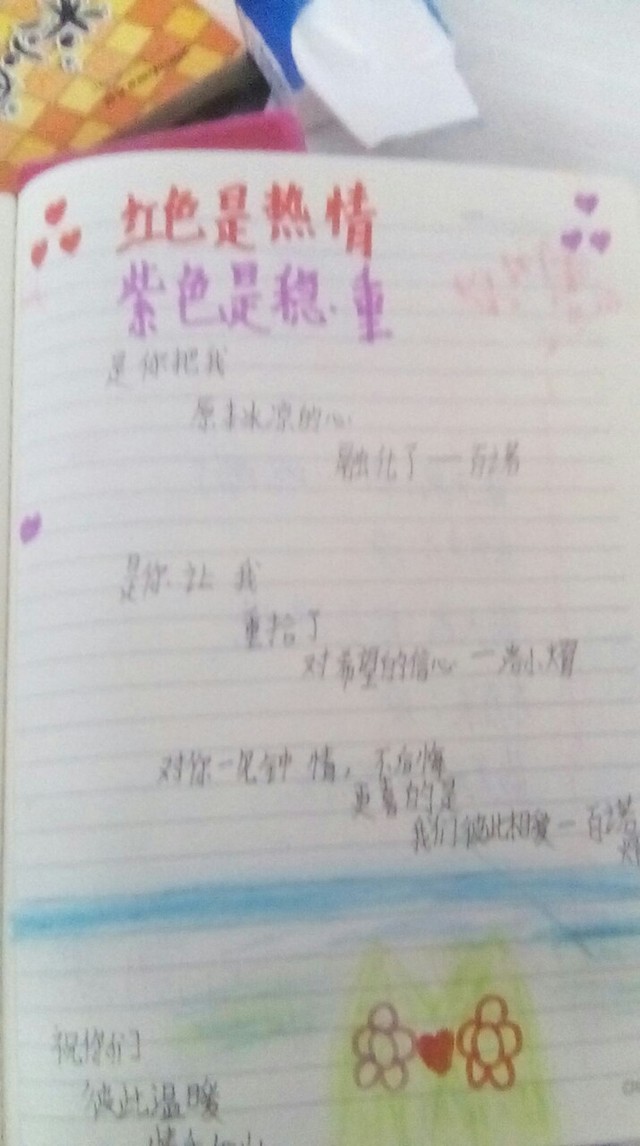 红色是热情
紫色是稳重
是你把我
原本冰凉的心
融化了一
是你让我
重拾了
对希望的信心一
对你一见钟情，不后悔
更喜的是
我们彼此相爱一
祝你们
彼此温暖